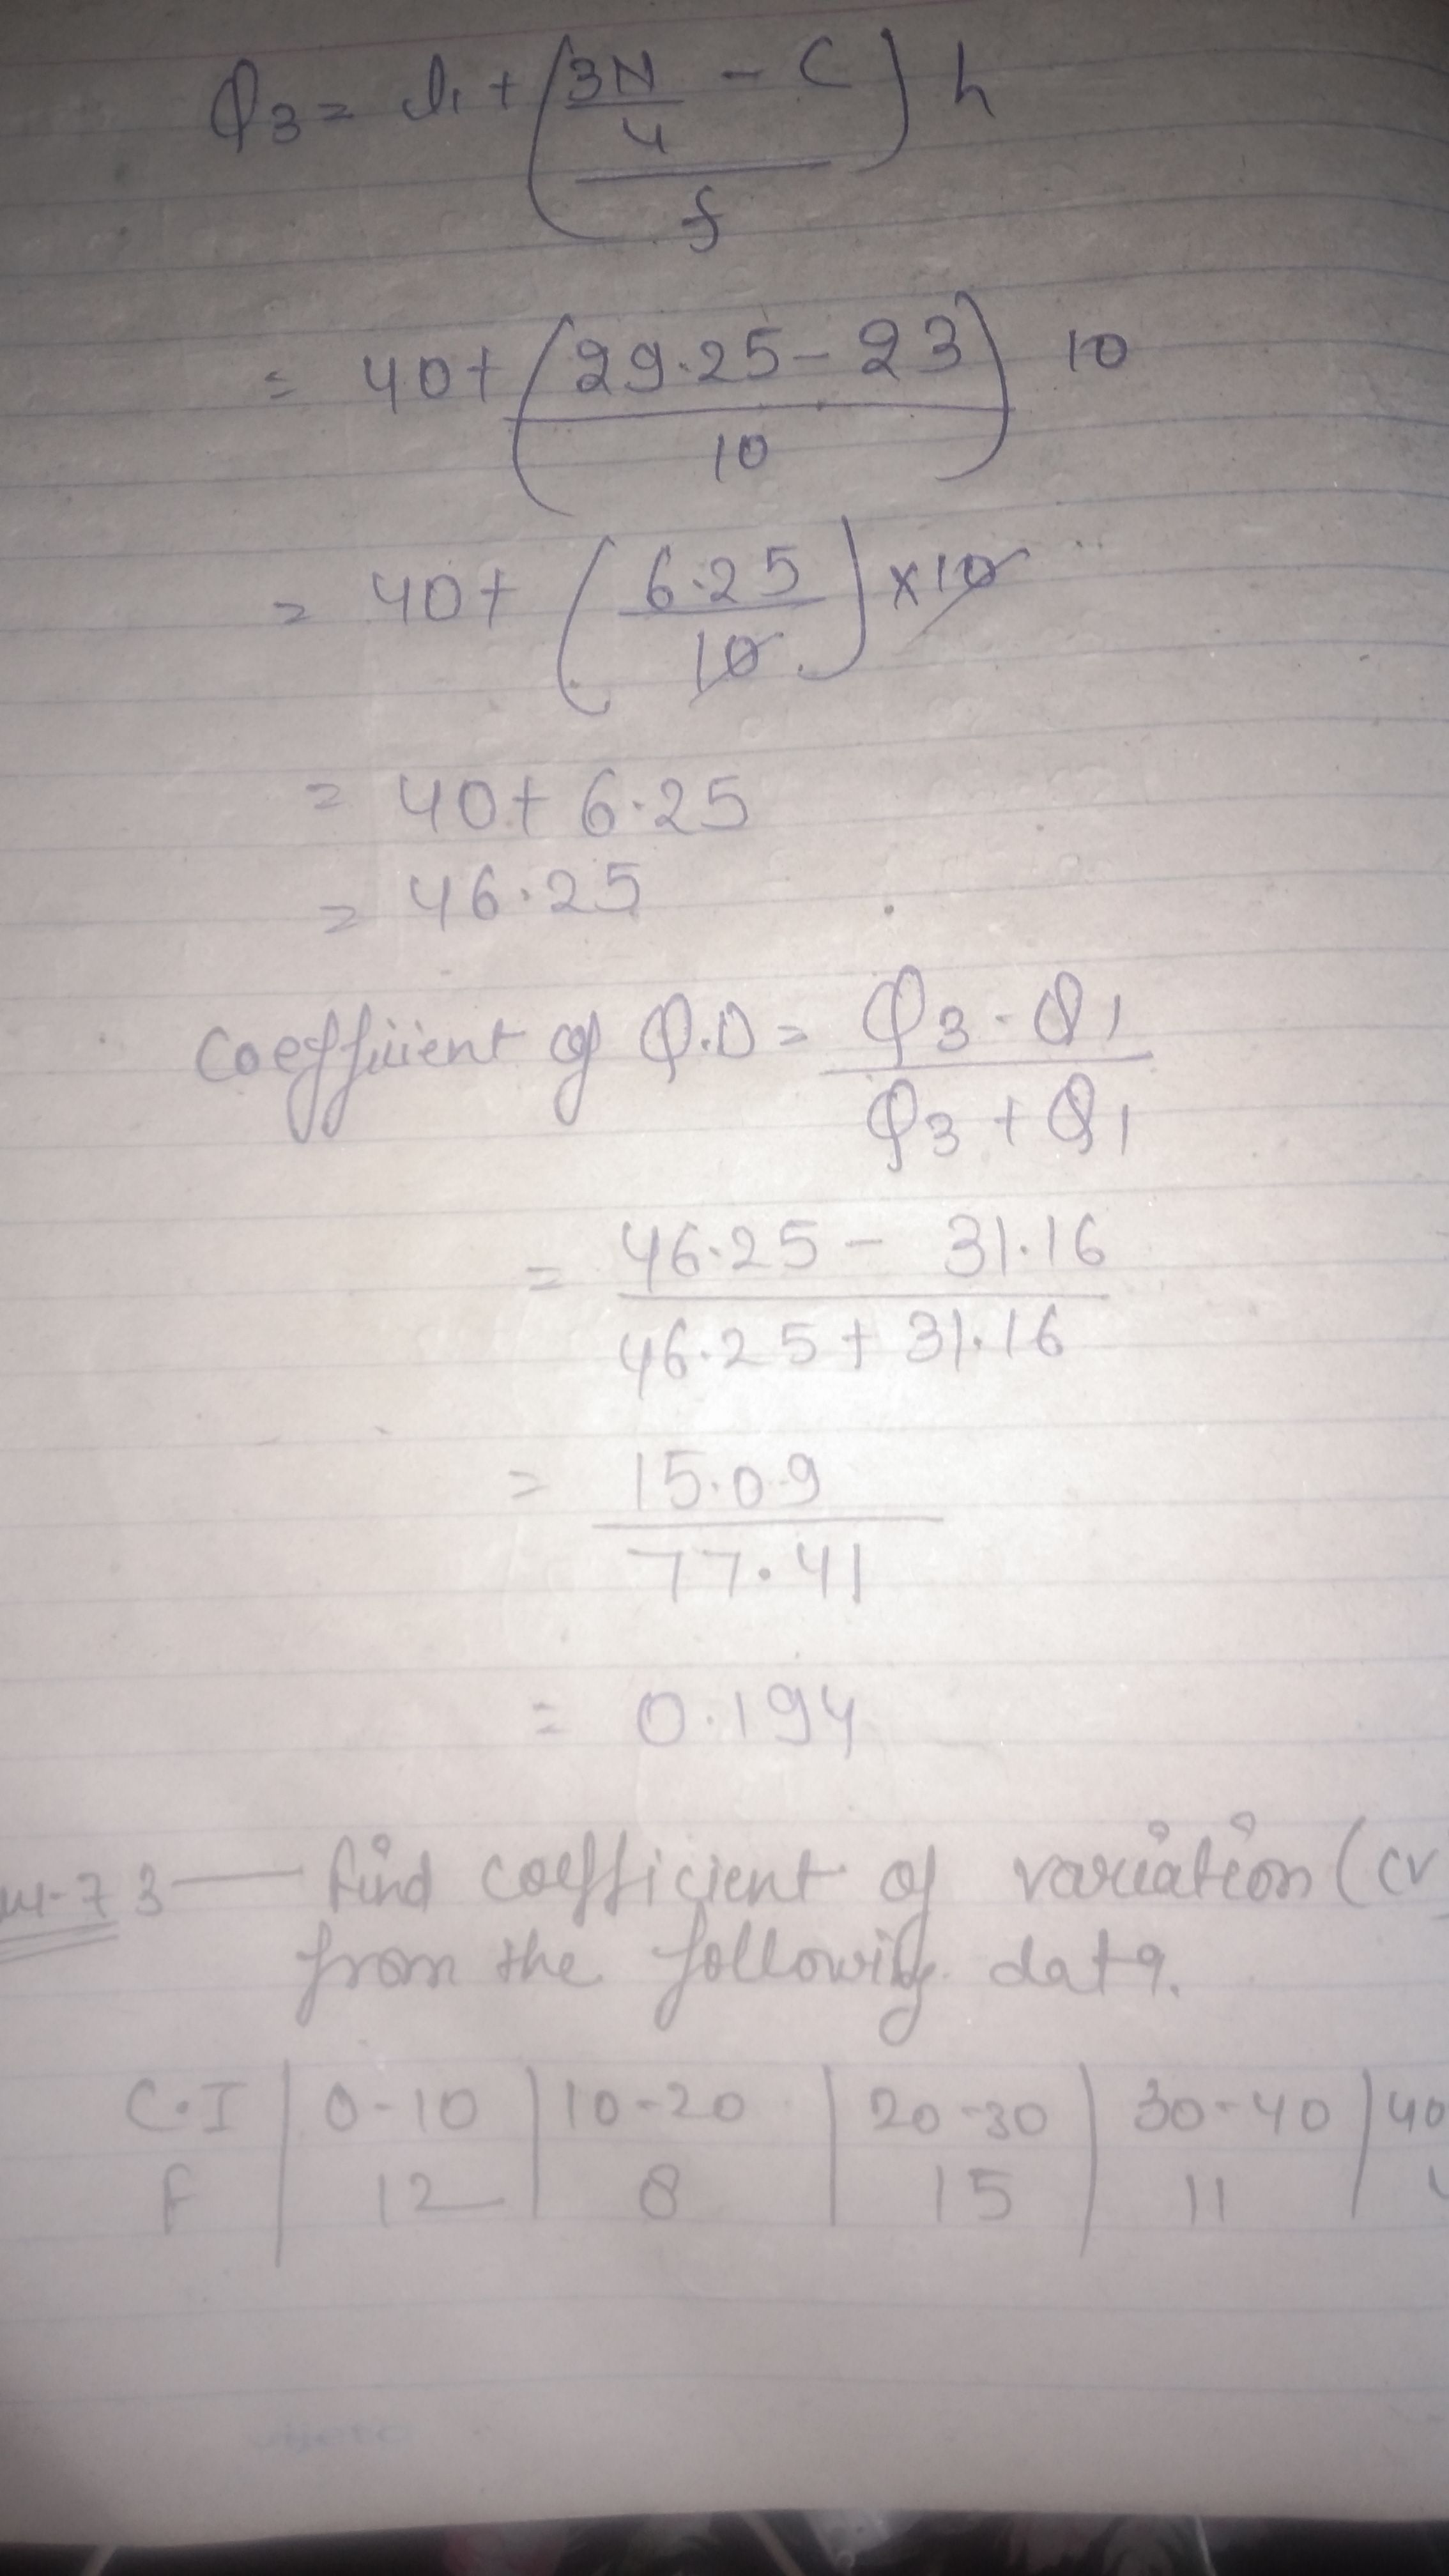 Q3 = l1 + (3N/4 - C / f) h
= 40+ (29.25 - 23 / 10) 10
= 40+ (6.25 / 10) ×10
= 40+ 6.25
= 46.25
Coefficient of Q.D = Q3 - Q1 / Q3 + Q1
= 46.25 - 31.16 / 46.25 + 31.16
= 15.09 / 77.41
= 0.194
73 — find coefficient of variation (CV
from the following data.
C.I | 0-10 | 10-20 | 20-30 | 30-40 | 40
F | 12 | 8 | 15 | 11 |